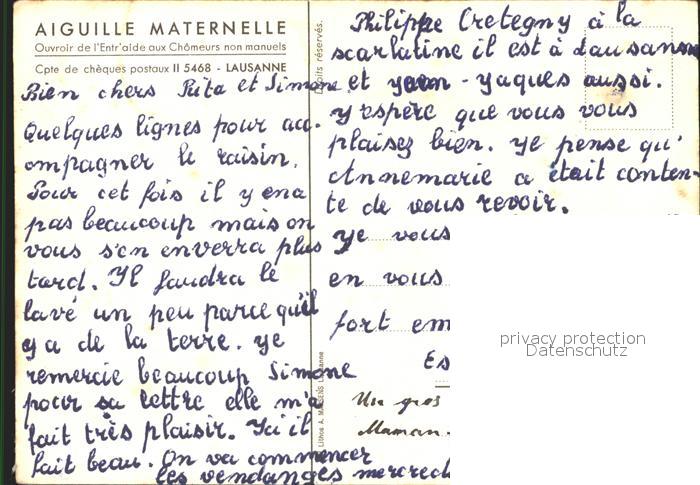 AIGUILLE MATERNELLE
Ouvroir de l'Entr'aide aux Chômeurs non manuels
Cpte de chèques postaux II 5468 - LAUSANNE
Bien chers Rita et Simone
Quelques lignes pour acc.
ompagner le raisin.
Pour cet fois il y ena
pas beaucoup mais on
vous s'en enverra plus
tard. Il faudra le
lavé un peu parce qu'il
y a de la terre. ye
remercie beaucoup Simone
pour sa lettre elle m'a
fait très plaisir. Ici il
fait beau. On va commencer
les vendanges mercredi
Droits réservés.
Lithos A. MARSENS Lausanne
Philippe Cretegny à la
scarlatine il est à Lausanne
et yean - yaques aussi.
y'espère que vous vous
plaisez bien. ye pense qu'
Annemarie a était conten-
te de vous revoir.
ye vous
en vous
fort em
Es
Un gros
Maman.
privacy protection
Datenschutz